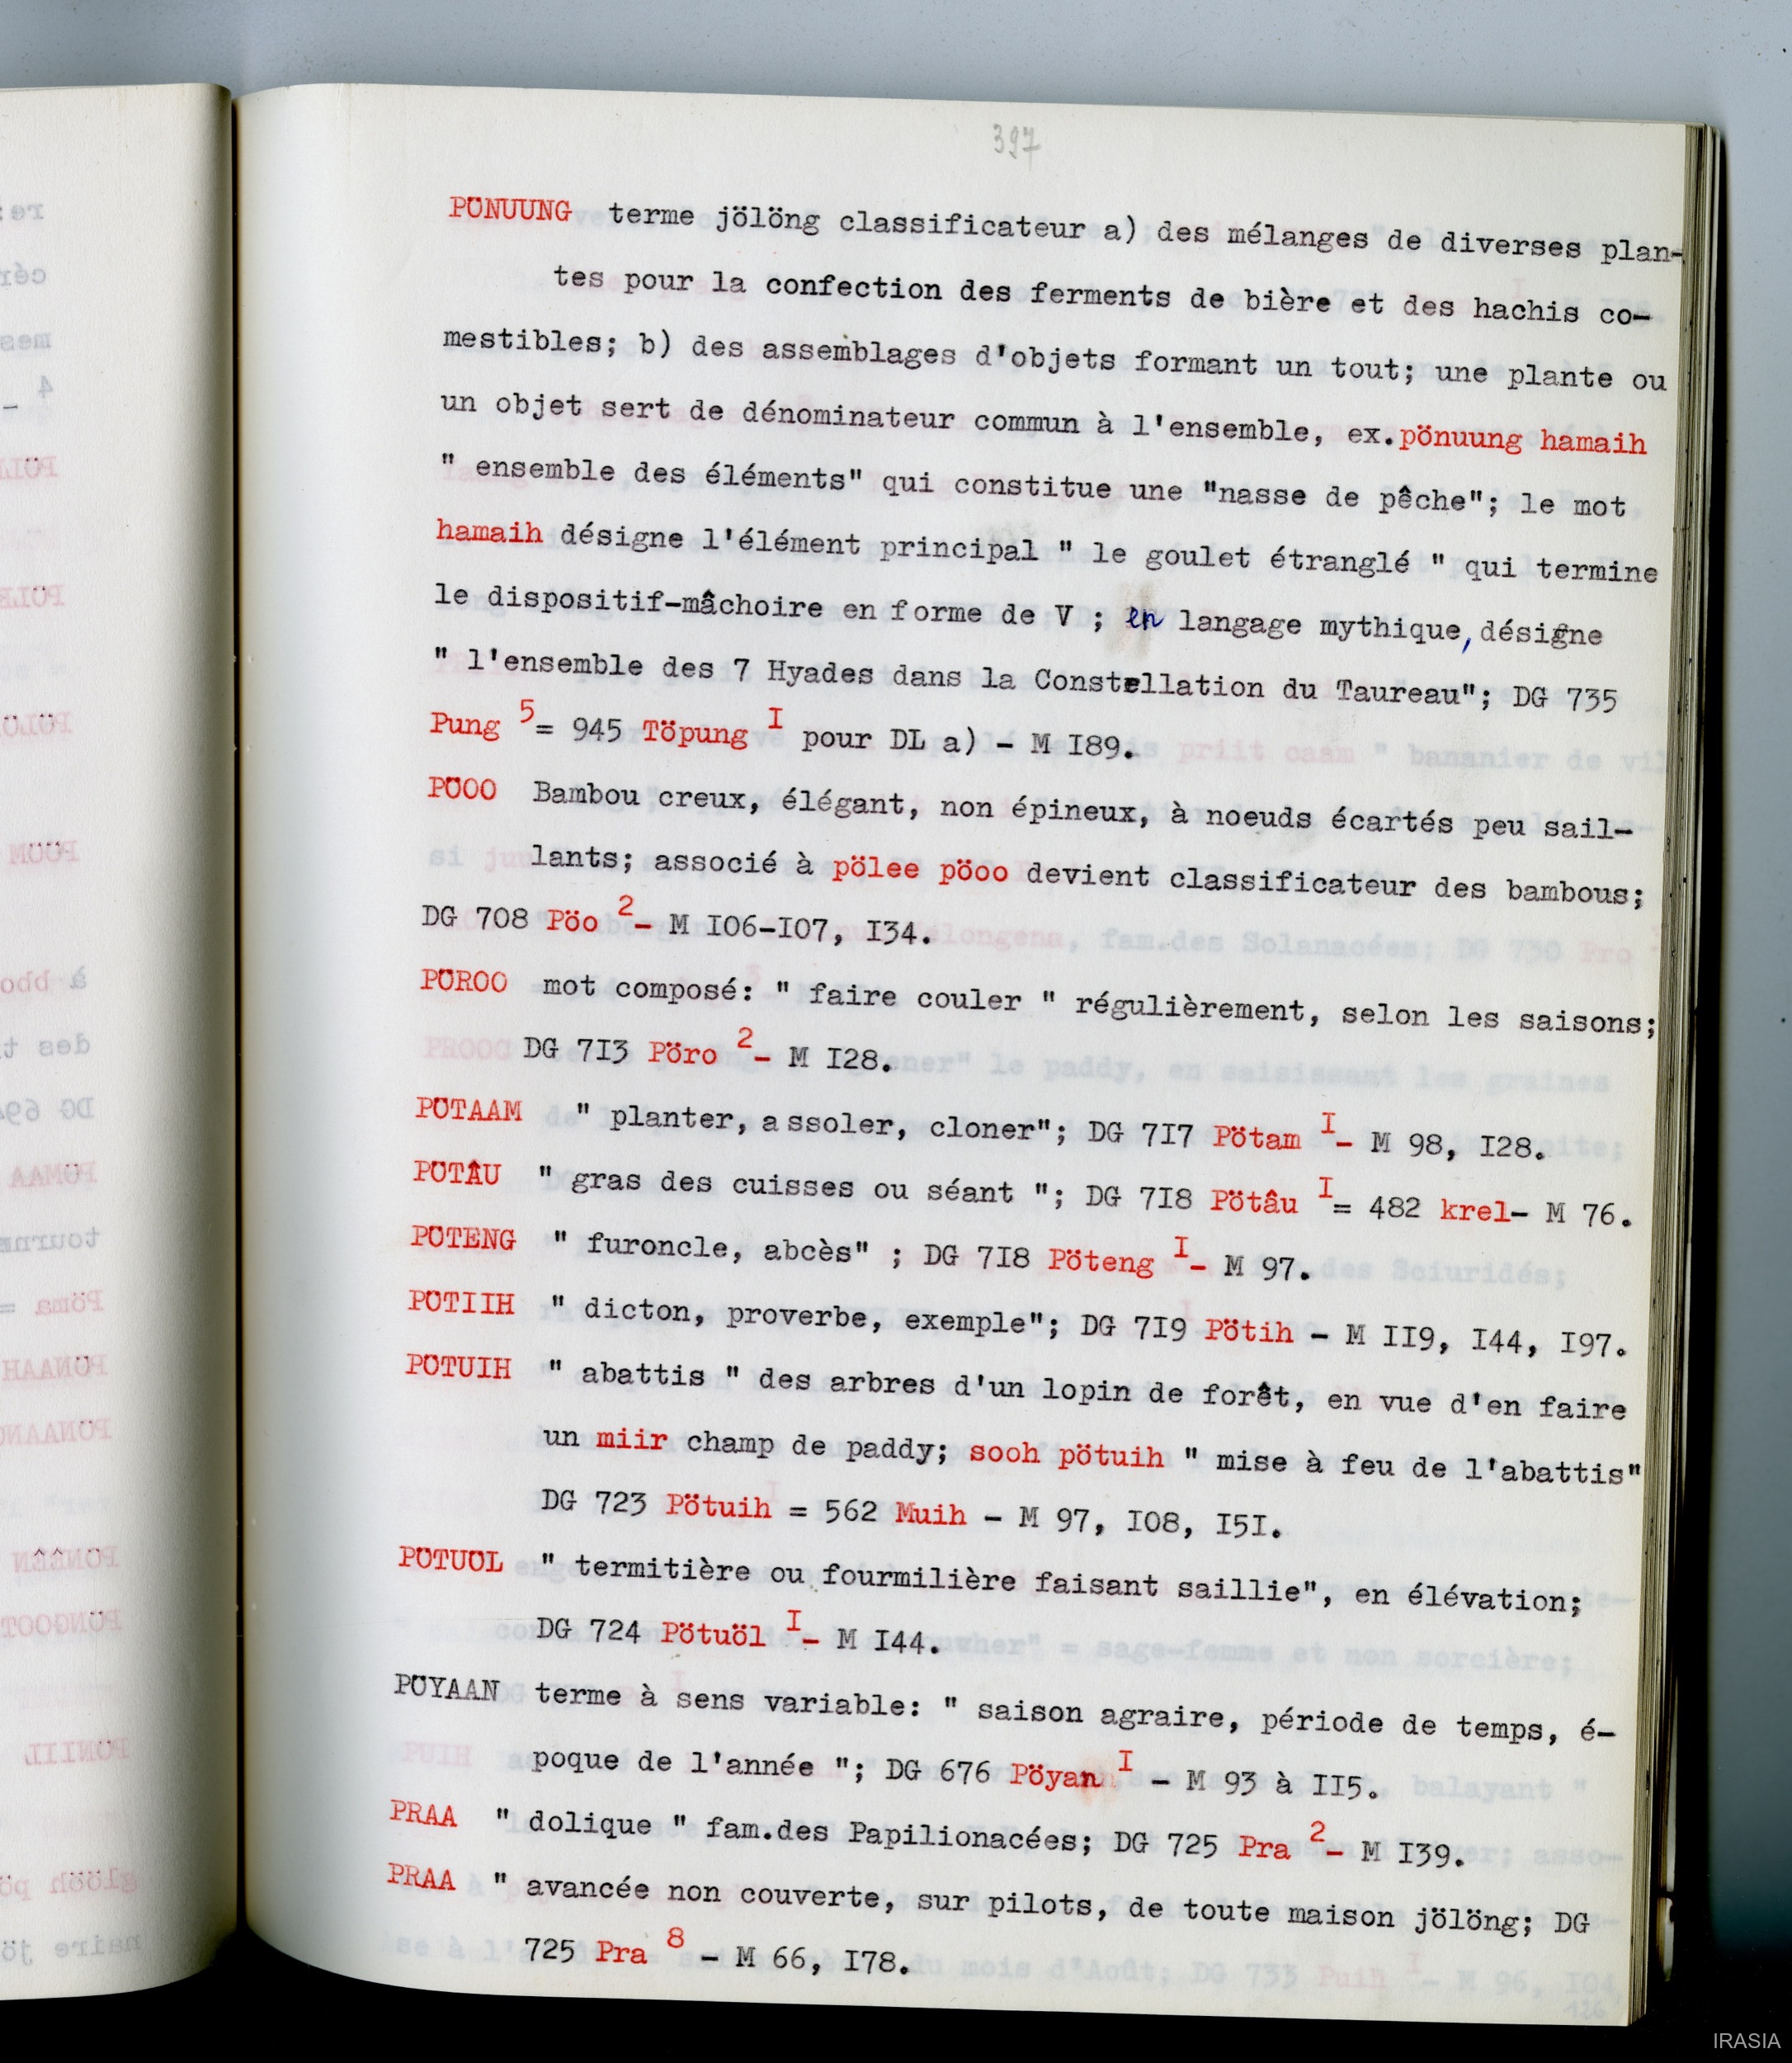 397
PÖNUUNG terme jölöng classificateur a) des mélanges de diverses plan-
tes pour la confection des ferments de bière et des hachis co-
mestibles; b) des assemblages d'objets formant un tout; une plante ou
un objet sert de dénominateur commun à l'ensemble, ex.pönuung hamaih
" ensemble des éléments" qui constitue une "nasse de pêche"; le mot
hamaih désigne l'élément principal " le goulet étranglé " qui termine
le dispositif-mâchoire en forme de V ; en langage mythique, désigne
" l'ensemble des 7 Hyades dans la Constellation du Taureau"; DG 735
Pung 5= 945 Töpung I pour DL a) - M I89.
PÖOO Bambou creux, élégant, non épineux, à noeuds écartés peu sail-
lants; associé à pölee pöoo devient classificateur des bambous;
DG 708 Pöo 2- M I06-I07, I34.
PÖROO mot composé: " faire couler " régulièrement, selon les saisons;
DG 7I3 Pöro 2- M I28.
PÖTAAM " planter, assoler, cloner"; DG 7I7 Pötam I- M 98, I28.
PÖTÂU " gras des cuisses ou séant "; DG 7I8 Pötâu I= 482 krel- M 76.
PÖTENG " furoncle, abcès" ; DG 7I8 Pöteng I- M 97.
PÖTIIH " dicton, proverbe, exemple"; DG 7I9 Pötih - M II9, I44, I97.
PÖTUIH " abattis " des arbres d'un lopin de forêt, en vue d'en faire
un miir champ de paddy; sooh pötuih " mise à feu de l'abattis"
DG 723 Pötuih = 562 Muih - M 97, I08, I5I.
PÖTUÖL " termitière ou fourmilière faisant saillie", en élévation;
DG 724 Pötuöl I- M I44.
PÖYAAN terme à sens variable: " saison agraire, période de temps, é-
poque de l'année "; DG 676 Pöyan I - M 93 à II5.
PRAA " dolique " fam.des Papilionacées; DG 725 Pra 2- M I39.
PRAA " avancée non couverte, sur pilots, de toute maison jölöng; DG
725 Pra 8 - M 66, I78.
IRASIA